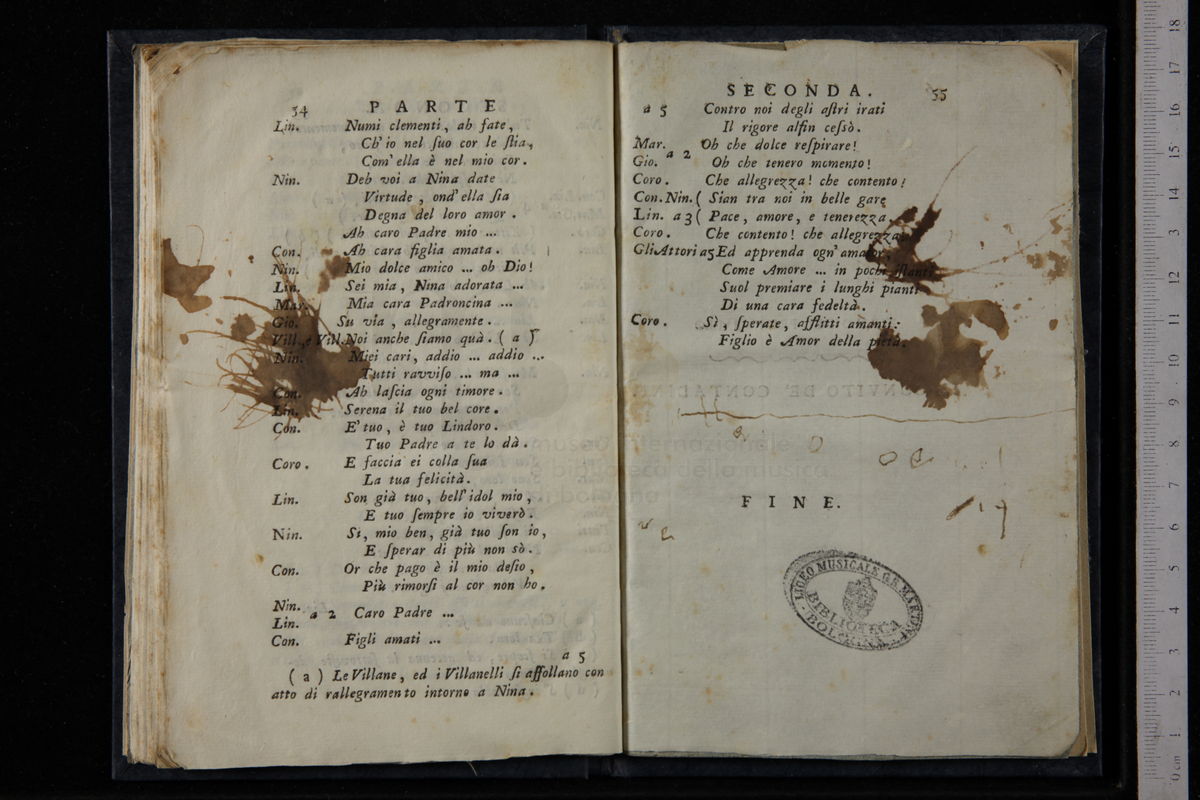 34 PARTE
Lin. Numi clementi, ah fate,
Ch'io nel ſuo cor le ſtia,
Com' ella è nel mio cor.
Nin. Deh voi a Nina date
Virtude, ond' ella ſia
Degna del loro amor.
Ah caro Padre mio ...
Con. Ah cara figlia amata.
Nin. Mio dolce amico ... oh Dio!
Lin. Sei mia, Nina adorata ...
Mar. Mia cara Padroncina ...
Gio. Su via, allegramente.
Vill. e Vill. Noi anche ſiamo quà. (a)
Nin. Miei cari, addio ... addio ...
Tutti ravviſo ... ma ...
Con. Ah laſcia ogni timore.
Lin. Serena il tuo bel core.
Con. E' tuo, è tuo Lindoro.
Tuo Padre a te lo dà.
Coro. E faccia ei colla ſua
La tua felicità.
Lin. Son già tuo, bell' idol mio,
E tuo ſempre io viverò.
Nin. Si, mio ben, già tuo ſon io,
E ſperar di più non sò.
Con. Or che pago è il mio deſio,
Più rimorſi al cor non ho.
Nin.
Lin. a 2 Caro Padre ...
Con. Figli amati ...
a 5
(a) Le Villane, ed i Villanelli ſi affollano con
atto di rallegramento intorno a Nina.
SECONDA. 35
a 5 Contro noi degli aſtri irati
Il rigore alfin ceſsò.
Mar. Oh che dolce reſpirare!
Gio. a 2 Oh che tenero momento!
Coro. Che allegrezza! che contento!
Con. Nin. ( Sian tra noi in belle gare
Lin. a 3 ( Pace, amore, e tenerezza.
Coro. Che contento! che allegrezza
Gli Attori a5 Ed apprenda ogn' amator,
Come Amore ... in pochi iſtanti
Suol premiare i lunghi pianti
Di una cara fedeltà.
Coro. Sì, ſperate, afflitti amanti:
Figlio è Amor della pietà.
FINE.
LICEO MUSICALE G.B. MARTINI
BIBLIOTECA
BOLOGNA
museo internazionale
e biblioteca della musica
di bologna